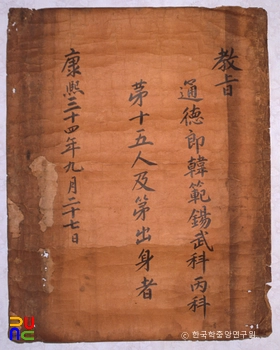 教旨
通德郎韓範錫武科丙科
第十五人及第出身者
康熙三十四年九月二十七日
© 한국학중앙연구원